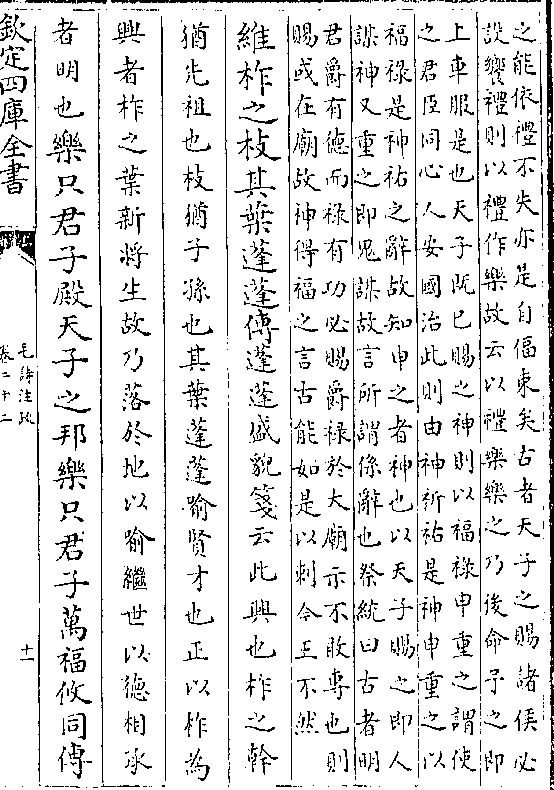 之能依禮不失亦是自偪束矣古者天子之賜諸侯必
設饗禮則以禮作樂故云以禮樂樂之乃後命予之即
上車服是也天子既已賜之神則以福祿申重之謂使
之君臣同心人安國治此則由神祈祐是神申重之以
福祿是神祐之辭故知申之者神也以天子賜之即人
謀神又重之即鬼謀故言所謂係辭也祭統曰古者明
君爵有德而祿有功必賜爵祿於大廟示不敢專也則
賜或在廟故神得福之言古能如是以刺今王不然
維柞之枝其葉蓬蓬傳蓬蓬盛貌箋云此興也柞之幹
猶先祖也枝猶子孫也其葉蓬蓬喻賢才也正以柞為
興者柞之葉新將生故乃落於地以喻繼世以德相承
者明也樂只君子殿天子之邦樂只君子萬福攸同傳
欽定四庫全書
毛詩注疏
卷二十二
十一